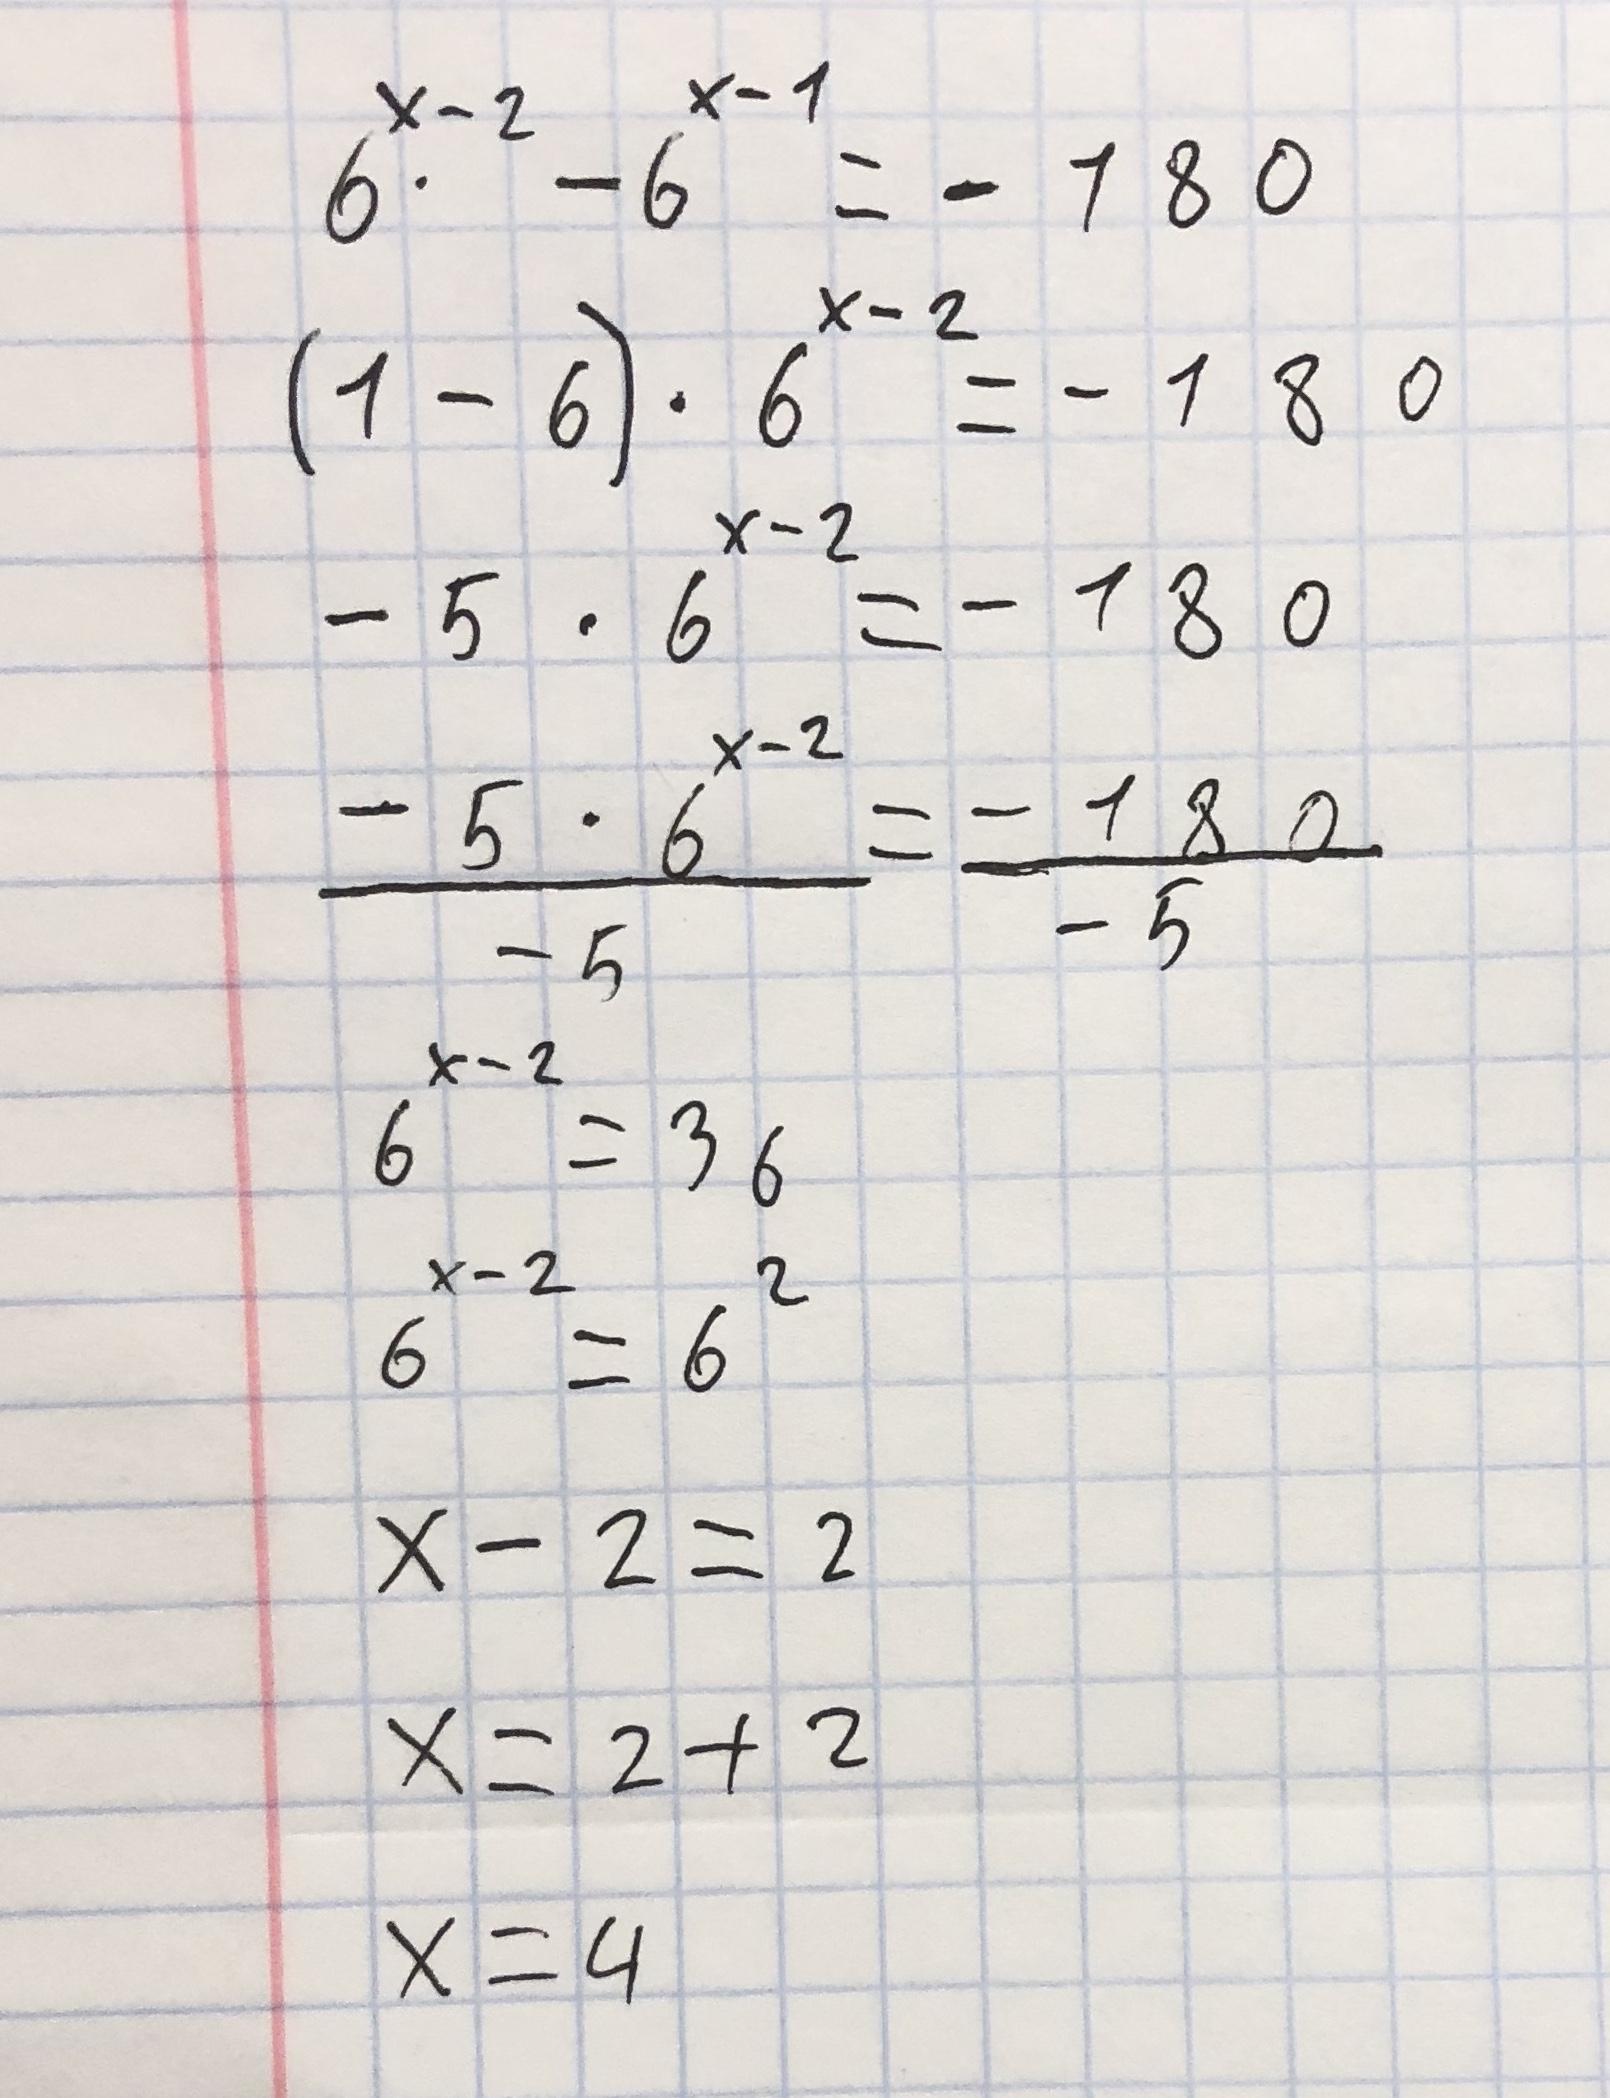 6^{x-2} - 6^{x-1} = -180
(1-6) · 6^{x-2} = -180
-5 · 6^{x-2} = -180
\frac{-5 · 6^{x-2}}{-5} = \frac{-180}{-5}
6^{x-2} = 36
6^{x-2} = 6^{2}
x - 2 = 2
x = 2 + 2
x = 4